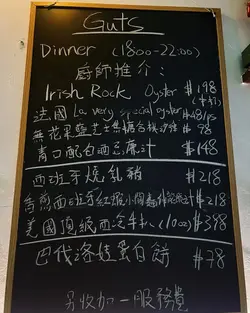 Guts
Dinner (18:00-22:00)
廚師推介:
Irish Rock Oyster $198
法國 La very special oyster $48/pc
無花果 芝士焦糖合桃沙律 $98
青口配白酒忌廉汁 $148
西班牙燒乳豬 $218
西班牙紅蝦 $218
美國頂級西冷牛扒(10oz) $398
蛋白餅 $78
另收加一服務費